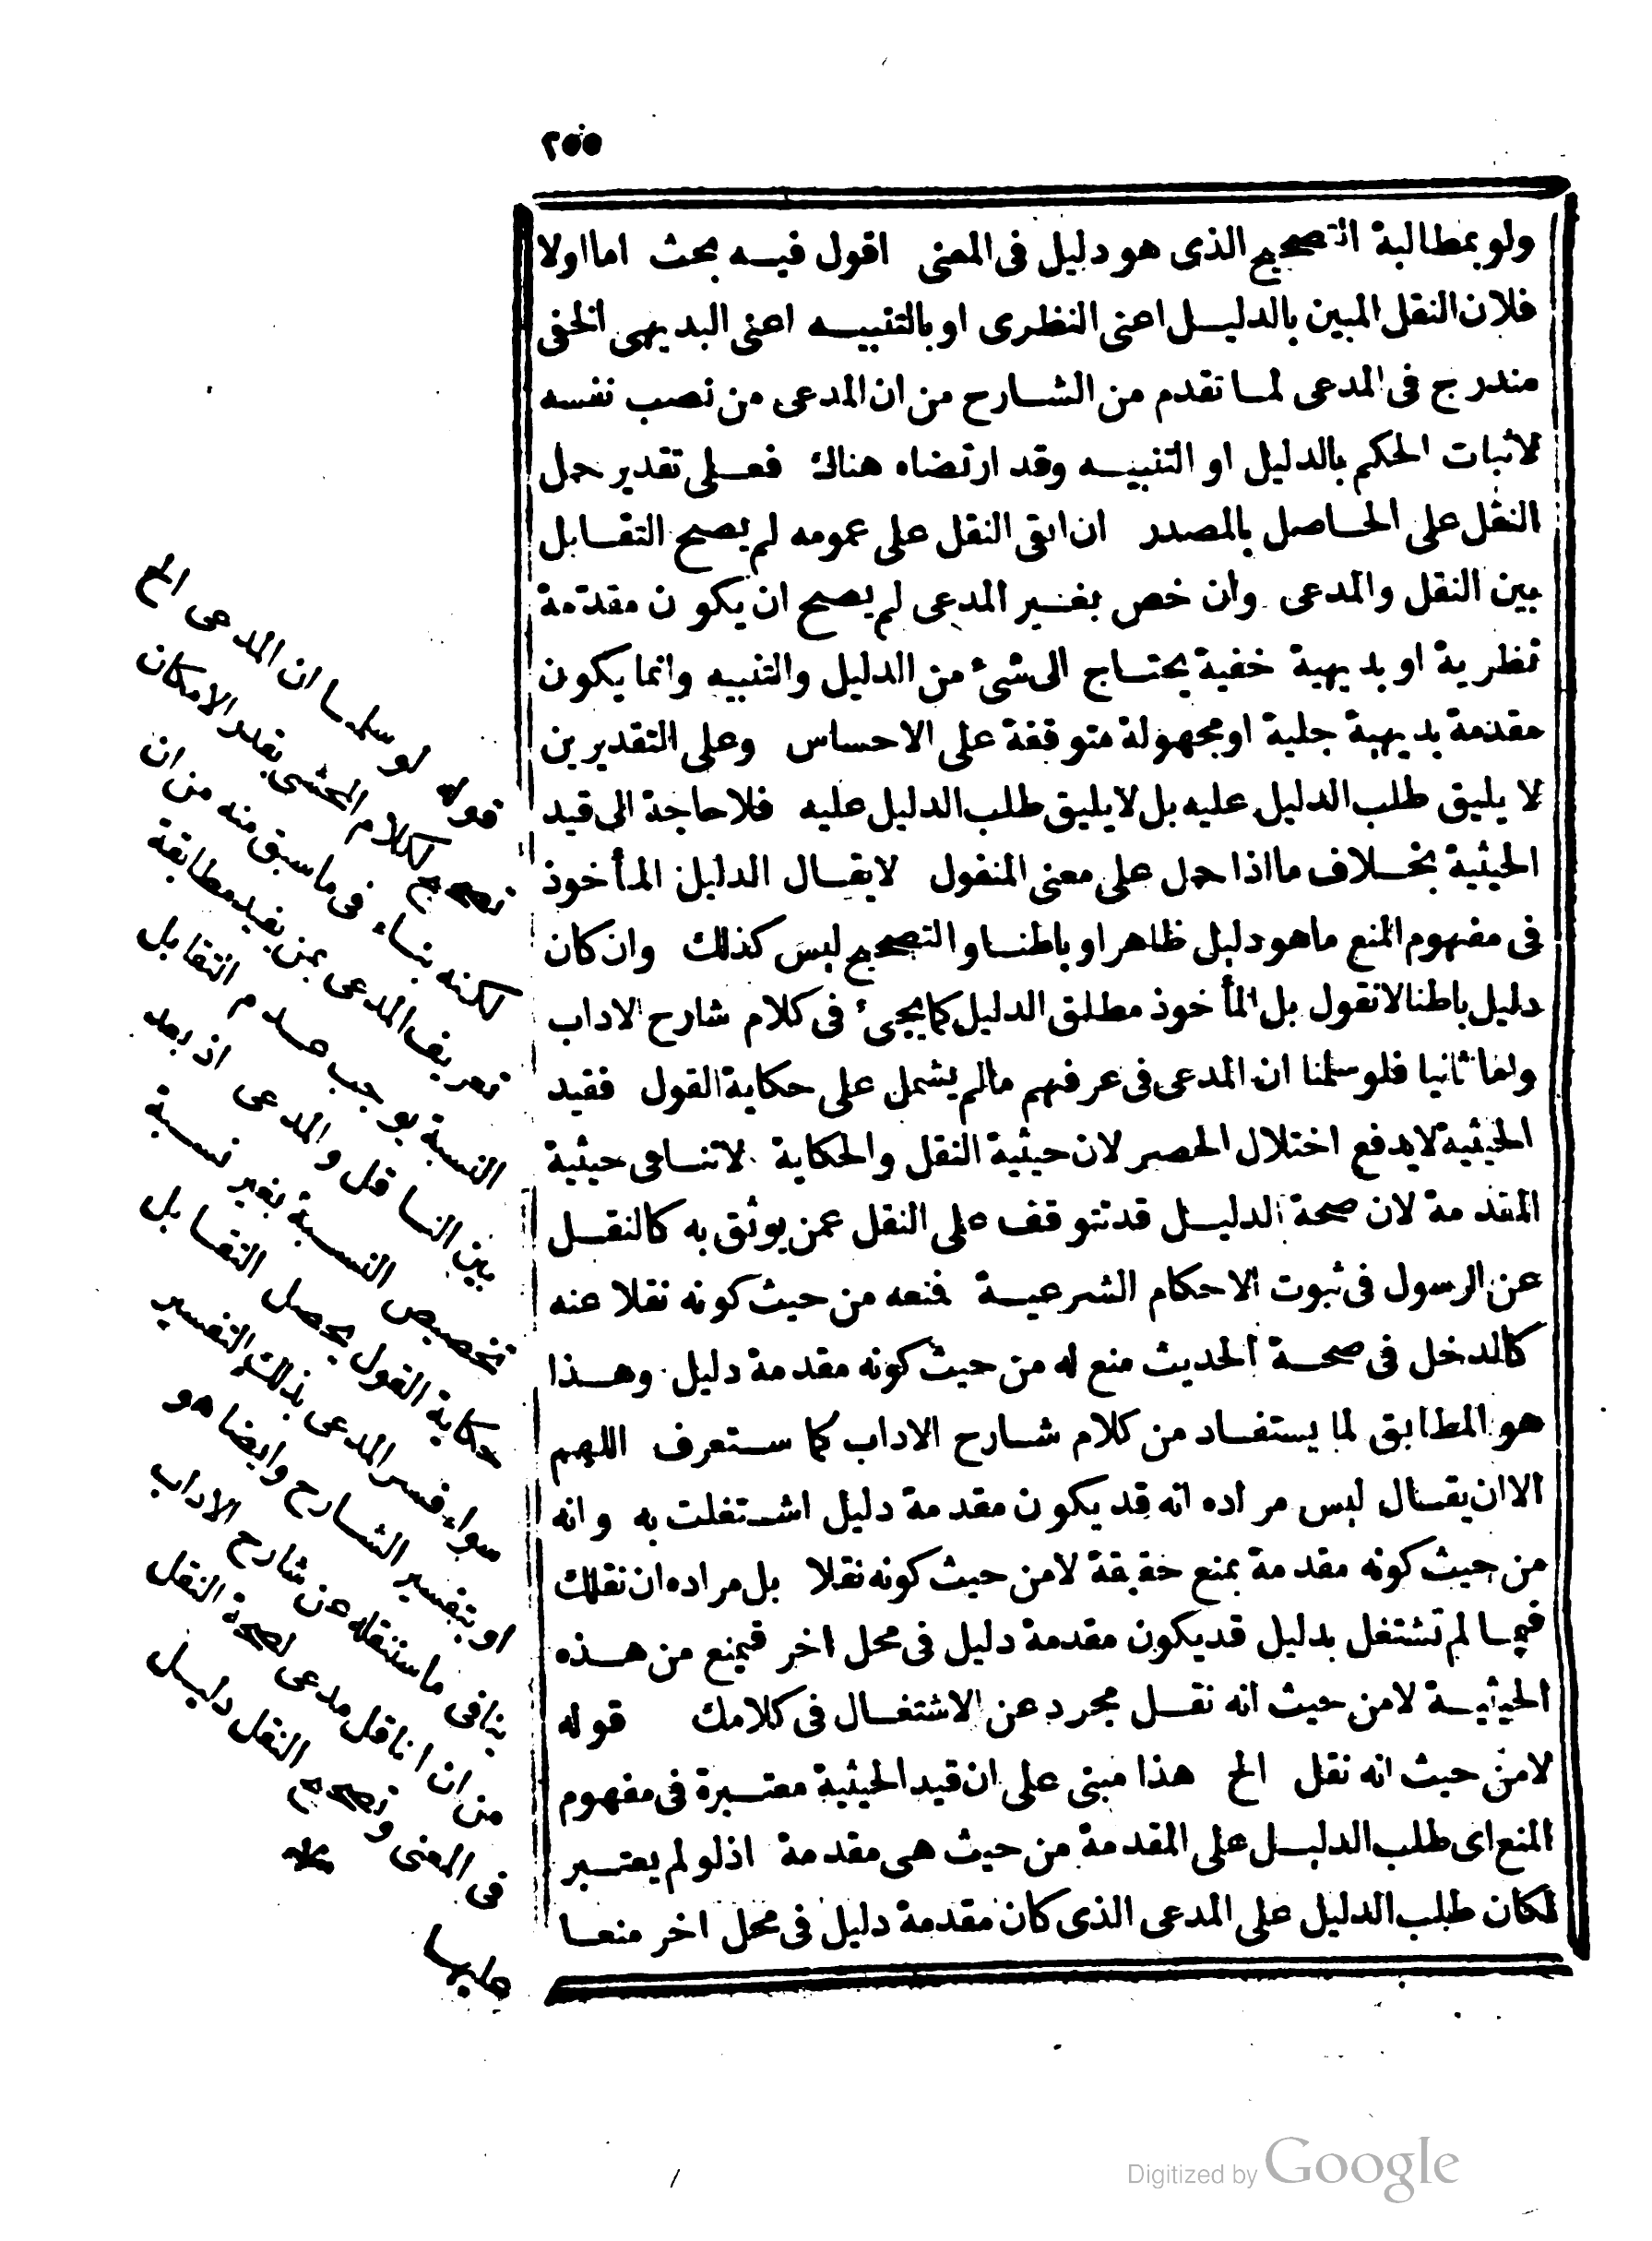 ٢٥٥
ولو بمطالبة التصحيح الذى هو دليل فى المعنى اقول فيه بحث اما اولا
فلان النقل المبين بالدليل اعنى النظرى او بالتنبيه اعنى البديهى الخفى
مندرج فى المدعى لما تقدم من الشارح من ان المدعى من نصب نفسه
لاثبات الحكم بالدليل او التنبيه وقد ارتضاه هناك فعلى تقدير حمل
النقل على الحاصل بالمصدر ان ابقى النقل على عمومه لم يصح التقابل
بين النقل والمدعى وان خص بغير المدعى لم يصح ان يكون مقدمة
نظرية او بديهية خفية يحتاج الى شئ من الدليل والتنبيه وانما يكون
مقدمة بديهية جلية او مجهولة متوقفة على الاحساس وعلى التقديرين
لا يليق طلب الدليل عليه بل لا يليق طلب الدليل عليه فلا حاجة الى قيد
الحيثية بخلاف ما اذا حمل على معنى المنقول لا يقال الدليل المأخوذ
فى مفهوم المنع ما هو دليل ظاهرا و باطنا و التصحيح ليس كذلك وان كان
دليل باطنا لانقول بل المأخوذ مطلق الدليل كما يجئ فى كلام شارح الاداب
واما ثانيا فلو سلمنا ان المدعى فى عرفهم مالم يشمل على حكاية القول فقيد
الحيثية لا يدفع اختلال الحصر لان حيثية النقل والحكاية لا تنافى حيثية
المقدمة لان صحة الدليل قد تتوقف على النقل عمن يوثق به كالنقل
عن الرسول فى ثبوت الاحكام الشرعية فمنعه من حيث كونه نقلا عنه
كالدخل فى صحة الحديث منع له من حيث كونه مقدمة دليل وهذا
هو المطابق لما يستفاد من كلام شارح الاداب كما ستعرف اللهم
الا ان يقال ليس مراده انه قد يكون مقدمة دليل اشتغلت به وانه
من حيث كونه مقدمة يمنع حقيقة لا من حيث كونه نقلا بل مراده ان نقلك
فيما لم تشتغل بدليل قد يكون مقدمة دليل فى محل اخر فيمنع من هذه
الحيثية لا من حيث انه نقل مجرد عن الاشتغال فى كلامك قوله
لا من حيث انه نقل الخ هذا مبنى على ان قيد الحيثية معتبرة فى مفهوم
المنع اى طلب الدليل على المقدمة من حيث هى مقدمة اذ لو لم يعتبر
لكان طلب الدليل على المدعى الذى كان مقدمة دليل فى محل اخر منعا
قوله لو سلمنا ان المدعى الخ
تصحيح لكلام المحشى بقدر الامكان
لكنه بناء فى ما سبق منه من ان
تعريف المدعى بمن يفيد مطابقة
النسبة يوجب عدم التقابل
بين الناقل والمدعى اذ بعد
تخصيص النسبة بغير نسبة
حكاية القول يحصل التقابل
سواء فسر المدعى بذلك التفسير
او بتفسير الشارح وايضا هو
ينافى ما سننقله عن شارح الاداب
من ان الناقل مدعى لصحة النقل
فى المعنى وتصحيح النقل دليل
منه
عليها